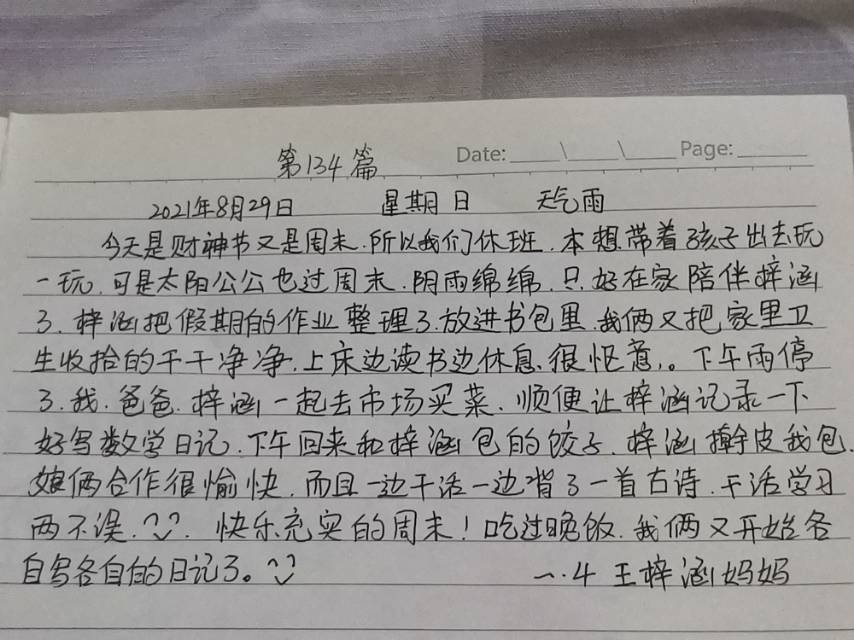 第134篇 Date: ____\____\____ Page: ______
2021年8月29日 星期日 天气雨
今天是财神节又是周末.所以我们休班.本想带着孩子出去玩
一玩.可是太阳公公也过周末.阴雨绵绵.只好在家陪伴梓涵
了.梓涵把假期的作业整理了.放进书包里.我俩又把家里卫
生收拾的干干净净.上床边读书边休息.很惬意。.下午雨停
了.我.爸爸.梓涵一起去市场买菜.顺便让梓涵记录一下
好写数学日记.下午回来和梓涵包的饺子.梓涵擀皮我包.
娘俩合作很愉快.而且一边干活一边背了一首古诗.干活学习
两不误. 快乐充实的周末！吃过晚饭.我俩又开始各
自写各自的日记了。
一.4 王梓涵妈妈